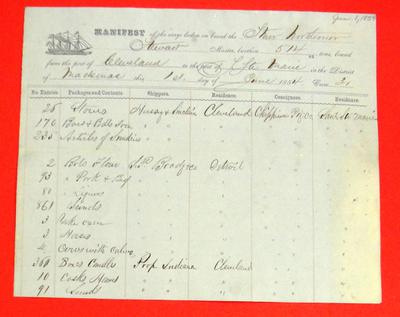 June 1, 1854
MANIFEST of the cargo laden on board the Steamer
Stewart Master, burthen 514 now bound
from the port of Cleveland to the port of Ste Marie
of Mackinac this 1st day of June 1854
No. Entries. Packages and Contents. Shippers. Residence. Consignees. Residence.
25 Stoves Hussey & Cleveland Chippewa Sault Ste Marie
170 Bars & Bdls Iron " " "
235 Articles of Sundries " " "
2 Bbls Flour Bradford Detroit "
93 " Pork & Beef " " "
80 " Liquors " " "
861 " Sunds " " "
3 Yoke oxen " " "
3 Horses " " "
4 Cows with calves " " "
360 Boxes Candles Prop Indiana Cleveland " "
10 Casks Hams " " " "
91 " Sunds " " " "